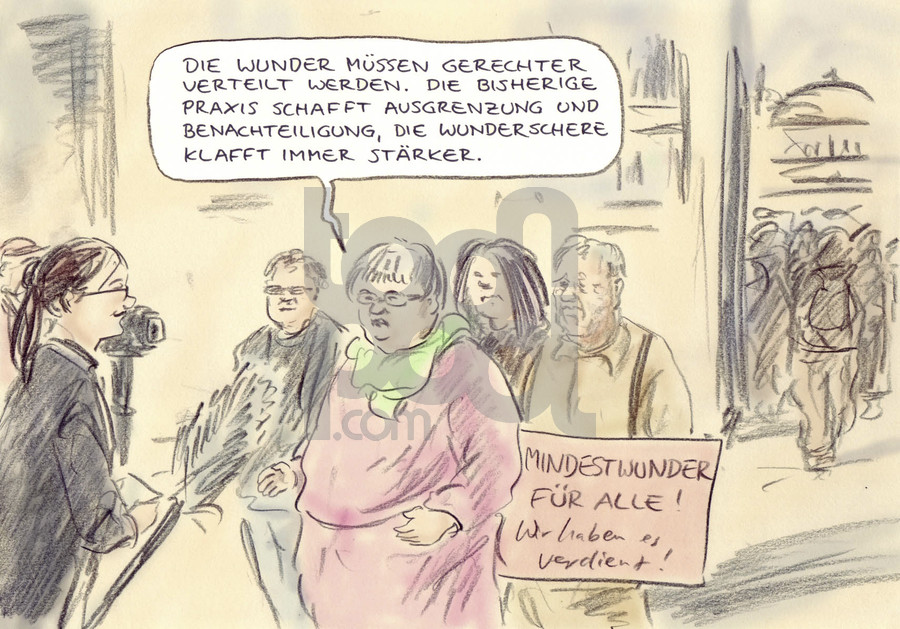 DIE WUNDER MÜSSEN GERECHTER
VERTEILT WERDEN. DIE BISHERIGE
PRAXIS SCHAFFT AUSGRENZUNG UND
BENACHTEILIGUNG, DIE WUNDERSCHERE
KLAFFT IMMER STÄRKER.
MINDESTWUNDER
FÜR ALLE!
Wir haben es
verdient!
.com